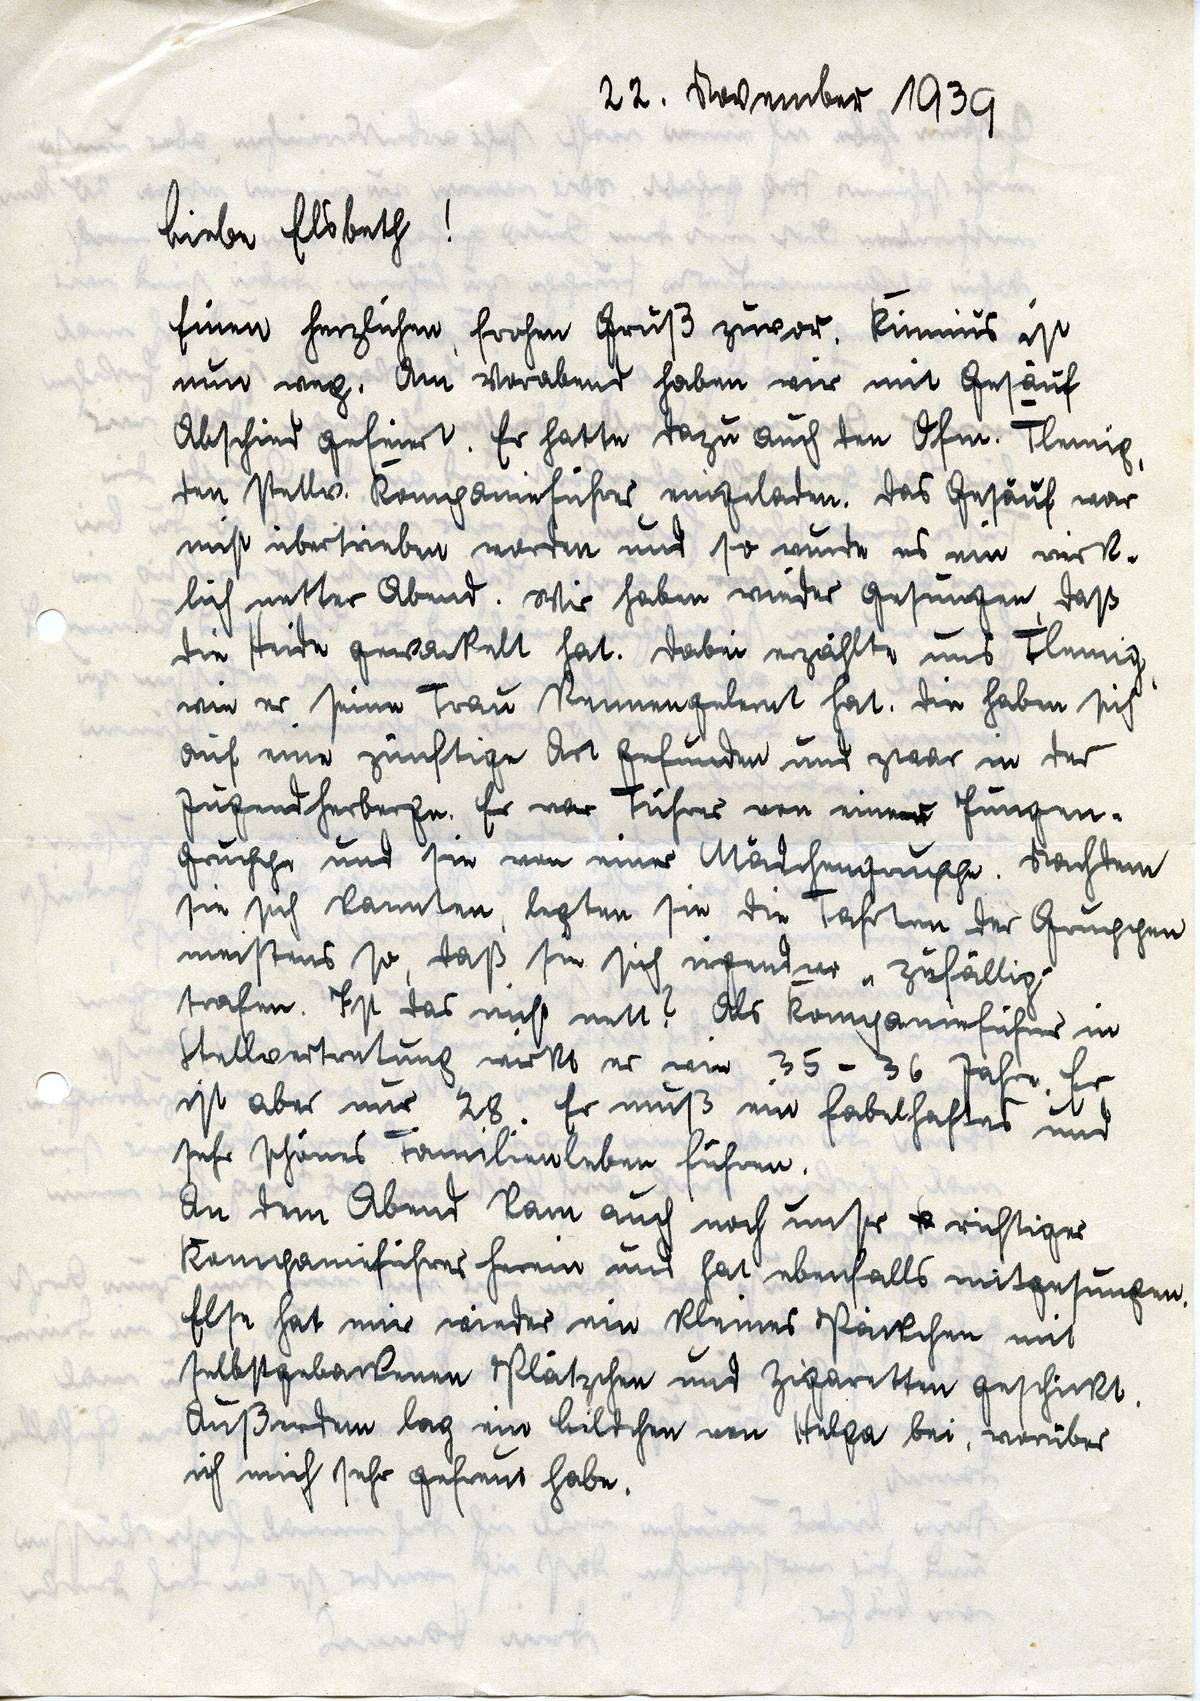 22. November 1939
Liebe Elsbeth!
Einen herzlichen, frohen Gruß zuvor. ist
nun weg. Am Vorabend haben wir mit Gesäuf
Abschied gefeiert. Er hatte dazu auch den Ofm. Flemig,
den stellv. Kompanieführer eingeladen. Das Gesäuf war
nicht übertrieben worden und so wurde es ein wirk-
lich netter Abend. Wir haben wieder gesungen, daß
die Heide gewackelt hat. Dabei erzählte uns Flemig,
wie er seine Frau kennengelernt hat. Die haben sich
auf eine zünftige Art gefunden und zwar in der
Jugendherberge. Er war Führer von einer Jungen-
gruppe und sie von einer Mädchengruppe. Nachdem
sie sich kannten, legten sie die Fahrten der Gruppen
meistens so, daß sie sich irgendwo „zufällig“
trafen. Ist das nicht nett? Als Kompanieführer in
Stellvertretung wirkt er wie 35 - 36 Jahre. Er
ist aber nur 28. Er muß ein fabelhaftes und
sehr schönes Familienleben führen.
An dem Abend kam auch noch unser richtiger
Kompanieführer herein und hat ebenfalls mitgesungen.
Else hat mir wieder ein kleines Päckchen mit
selbstgebackenen Plätzchen und Zigaretten geschickt.
Außerdem lag ein Bildchen von Helga bei, worüber
ich mich sehr gefreut habe.